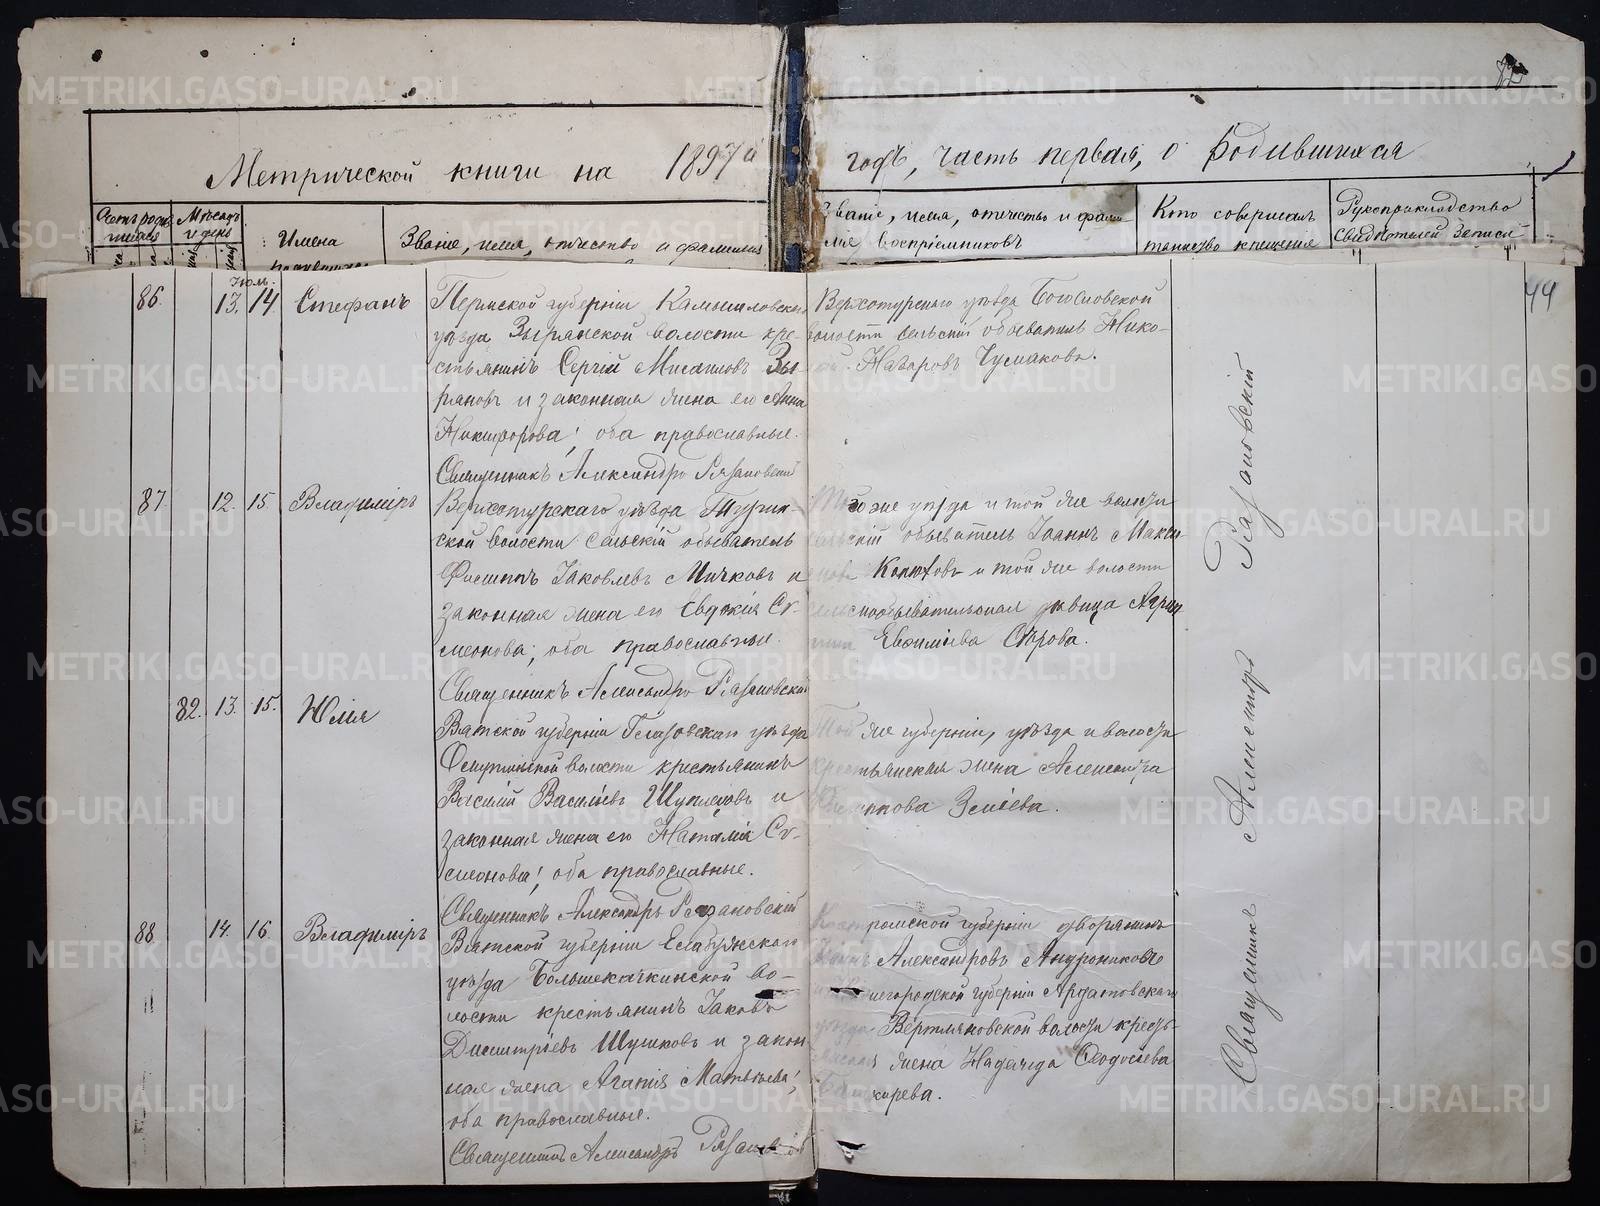 Метрической книги на 1897й
годъ, часть первая, о родившихся
Счетъ родив-
шихся
Мѣсяцъ
и день
Имена
Званіе, имя, отчество и фамилія
Званіе, имя, отчество и фами-
лія воспріемниковъ
Кто совершалъ
таинство крещенія
Рукоприкладство
свидѣтелей записи
44
Іюль
86. 13. 14. Стефанъ
Пермской губерніи Камышловскаго
уѣзда Зырянской волости кре-
стьянинъ Сергій Мисаиловъ Зы-
ряновъ и законная жена его Анна
Никифорова; оба православные.
Священникъ Александръ Рязановскій
Верхотурскаго уѣзда Богословской
волости сельскій обыватель Нико-
лай Назаровъ Чумаковъ.
87. 12. 15. Владиміръ
Верхотурскаго уѣзда Турин-
ской волости сельскій обыватель
Филиппъ Іаковлевъ Мичковъ и
законная жена его Евдокія Си-
меонова; оба православные.
Священникъ Александръ Рязановскій
Того же уѣзда и той же волости
сельскій обыватель Іоаннъ
и той же волости
сельскообывательская дѣвица
Евѳиміева Сѣрова.
82. 13. 15. Юлія
Вятской губерніи Глазовскаго уѣзда
волости крестьянинъ
Василій Васильевъ и
законная жена его Наталія Си-
меонова; оба православные.
Священникъ Александръ Рязановскій
Той же губерніи, уѣзда и волости
крестьянская жена Александра
Филиппова
88. 14. 16. Владиміръ
Вятской губерніи Елабужскаго
уѣзда Большекачкинской во-
лости крестьянинъ Іаковъ
Димитріевъ Шушковъ и закон-
ная жена Агапія Матвѣева;
оба православные.
Священникъ Александръ Рязановскій
Костромской губерніи дворянинъ
Александровъ Андрониковъ
и Нижегородской губерніи Ардатовскаго
уѣзда Вертьяновской волости кресть-
янская жена Надежда Ѳеодосіева
Башкирева.
Священникъ Александръ Рязановскій
METRIKI.GASO-URAL.RU